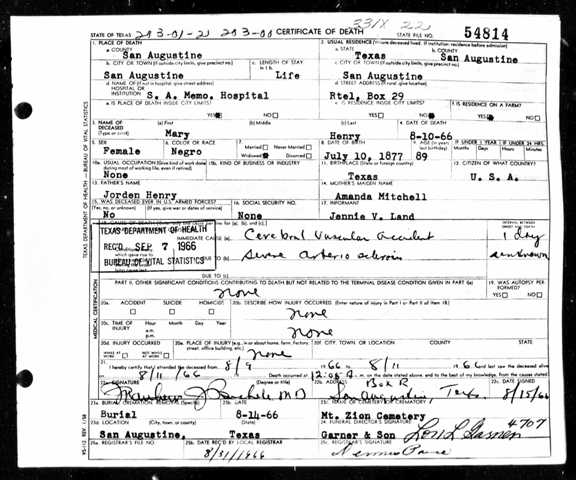 STATE OF TEXAS CERTIFICATE OF DEATH STATE FILE NO. 54814
1. PLACE OF DEATH 2. USUAL RESIDENCE (Where deceased lived. If institution: residence before admission)
a. COUNTY San Augustine a. STATE Texas b. COUNTY San Augustine
b. CITY OR TOWN (If outside city limits, give precinct no.) San Augustine c. LENGTH OF STAY in 1 b. Life c. CITY OR TOWN (If outside city limits, give precinct no.) San Augustine
d. NAME OF (If not in hospital, give street address) HOSPITAL OR INSTITUTION S. A. Memo. Hospital d. STREET ADDRESS (If rural, give location) Rte1, Box 29
e. IS PLACE OF DEATH INSIDE CITY LIMITS? YES NO e. IS RESIDENCE INSIDE CITY LIMITS? YES NO f. IS RESIDENCE ON A FARM? YES NO
3. NAME OF DECEASED (Type or print) (a) First Mary (b) Middle (c) Last Henry 4. DATE OF DEATH 8-10-66
5. SEX Female 6. COLOR OR RACE Negro 7. Married Never Married Widowed Divorced 8. DATE OF BIRTH July 10, 1877 9. AGE (In years last birthday) 89 IF UNDER 1 YEAR Months Days IF UNDER 24 HRS. Hours Min.
10a. USUAL OCCUPATION (Give kind of work done during most of working life, even if retired) None 10b. KIND OF BUSINESS OR INDUSTRY 11. BIRTHPLACE (State or foreign country) Texas 12. CITIZEN OF WHAT COUNTRY? U. S. A.
13. FATHER'S NAME Jorden Henry 14. MOTHER'S MAIDEN NAME Amanda Mitchell
15. WAS DECEASED EVER IN U.S. ARMED FORCES? (Yes, no, or unknown) (If yes, give war or dates of service) No 16. SOCIAL SECURITY NO. None 17. INFORMANT Jennie V. Land
18. CAUSE OF DEATH INTERVAL BETWEEN ONSET AND DEATH
TEXAS DEPARTMENT OF HEALTH
REC'D SEP 7 1966
BUREAU OF VITAL STATISTICS
IMMEDIATE CAUSE (a) Cerebral Vascular accident 1 day
DUE TO (b) severe arterio sclerosis unknown
DUE TO (c)
PART II. OTHER SIGNIFICANT CONDITIONS CONTRIBUTING TO DEATH BUT NOT RELATED TO THE TERMINAL DISEASE CONDITION GIVEN IN PART I(a) none 19. WAS AUTOPSY PERFORMED? YES NO
20a. ACCIDENT SUICIDE HOMICIDE 20b. DESCRIBE HOW INJURY OCCURRED. (Enter nature of injury in Part I or Part II of item 18) none
20c. TIME OF INJURY Hour a.m. p.m. Month Day Year none
20d. INJURY OCCURRED WHILE AT WORK NOT WHILE AT WORK 20e. PLACE OF INJURY (e.g. in or about home, farm, factory, street, office building, etc.) none 20f. CITY, TOWN, OR LOCATION COUNTY STATE
21. I hereby certify that I attended the deceased from 8/9 1966 to 8/11 1966 and last saw the deceased alive
8/11/66 Death occurred at m. on the date stated above, and to the best of my knowledge, from the causes stated.
22a. SIGNATURE (Degree or title) M D 22b. ADDRESS Box R San Augustine, Tex. 22c. DATE SIGNED 8/15/66
23a. BURIAL, CREMATION, REMOVAL (Specify) Burial 23b. DATE 8-14-66 23c. NAME OF CEMETERY OR CREMATORY Mt. Zion Cemetery
23d. LOCATION (City, town, or county) (State) San Augustine, Texas 24. FUNERAL DIRECTOR'S SIGNATURE Garner & Son 4707
25a. REGISTRAR'S FILE NO. 25b. DATE REC'D BY LOCAL REGISTRAR 8/31/1966 25c. REGISTRAR'S SIGNATURE
TEXAS DEPARTMENT OF HEALTH—BUREAU OF VITAL STATISTICS
MEDICAL CERTIFICATION